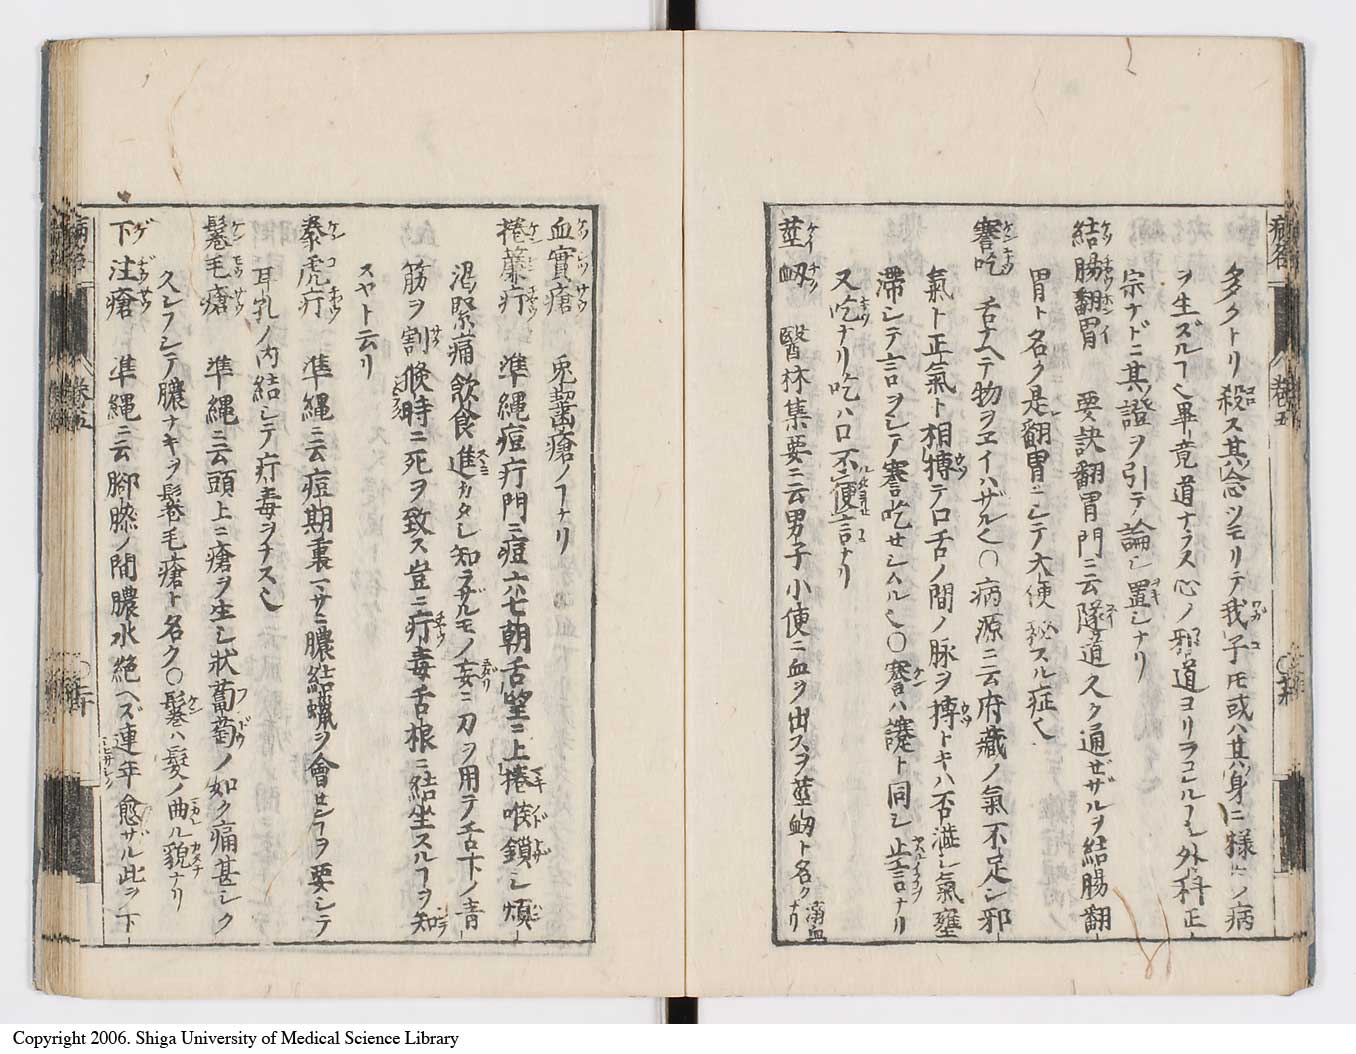 病名
巻五
多クトリ殺ス其念ツモリテ我子𪜈或ハ其身ニ様〻ノ病
ヲ生ズルヿ也畢竟道ナラス心ノ邪道ヨリヲコルヿ也外科正
宗ナドニ其證ヲ引テ論シ置シナリ
結腸翻胃 要訣翻胃門ニ云隧道スク通ゼザルヲ結腸翻
胃ト名ク是翻胃ニシテ大便秘スル症也
謇吃 舌ナヘテ物ヲヱイハザル也〇病源ニ云府藏ノ氣不足シ邪
氣ト正氣ト相搏テ口舌ノ間ノ脉ヲ搏トキハ否澁シ氣壅
滞シテ言ヿヲシテ謇吃セシムル也〇謇ハ讓ト同シ止言ナリ
又吃ナリ吃ハ口不便言ナリ
莖衂 醫林集要ニ云男子小便ニ血ヲ出スヲ莖衂ト名ク溺血ナリ
血實瘡 兎齧瘡ノヿナリ
捲簾疔 準縄痘疔門ニ痘六七朝舌巠ニ上捲喉鎖シ煩
渇緊痛飲食進カタシ知ラザルモノ妄ニ刀ヲ用テ舌下ノ青
筋ヲ割俛時ニ死ヲ致ス豈ニ疔毒舌根ニ結坐スルヿヲ知
スヤト云リ
豢虎疔 準縄ニ云痘期裏マサニ膿結蠟ヲ會センヿヲ要シテ
耳乳ノ内結シテ疔毒ヲナス也
鬈毛瘡 準縄ニ云頭上ニ瘡ヲ生シ狀葡萄ノ如ク痛甚シク
久シフシテ膿ナキヲ鬈毛瘡ト名ク〇鬈ハ髮ノ曲ル貌ナリ
下注瘡 準縄ニ云脚膝ノ間膿水絶ヘズ連年愈ザル此ヲ下
病名
巻五
〇二十
Copyright 2006. Shiga University of Medical Science Library